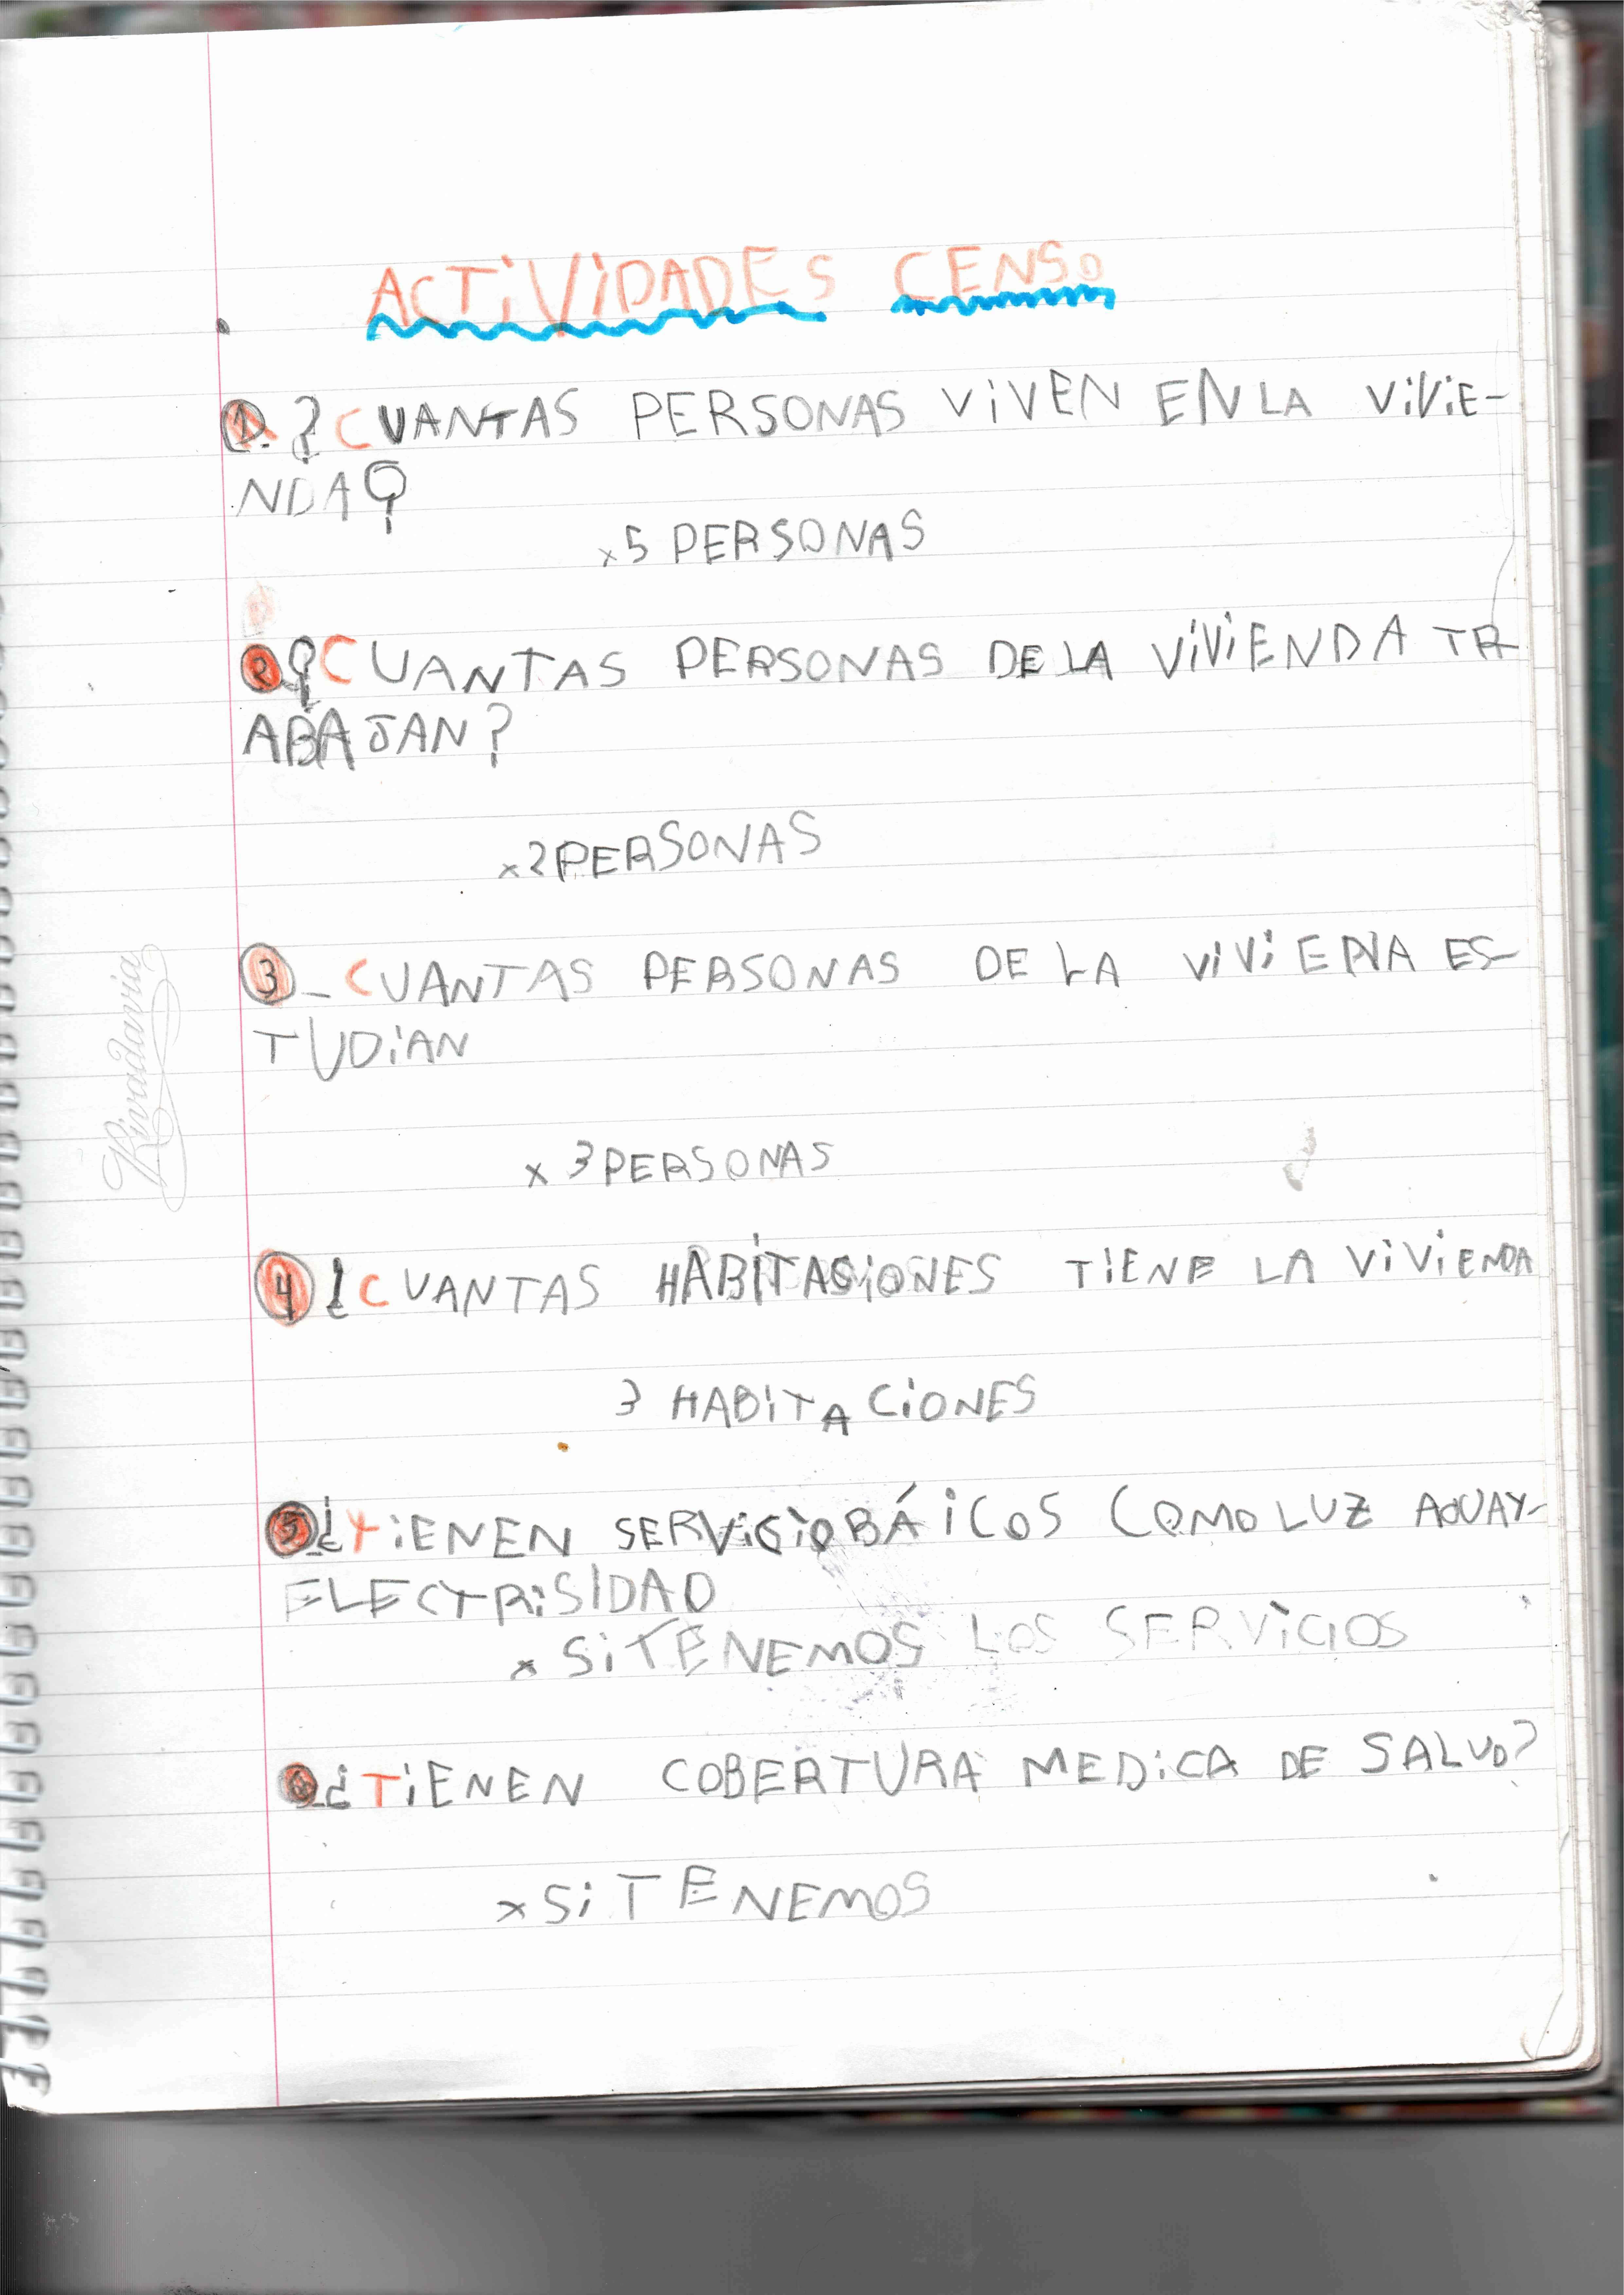 ACTiViDADES CENSO
1. ?CUANTAS PERSONAS ViVEN EN LA ViViE-
NDA?
x5 PERSONAS
2. ?CUANTAS PERSONAS DE LA ViViENDA TR
ABAJAN?
x2 PERSONAS
3_ CUANTAS PERSONAS DE LA ViViENA ES-
TUDiAN
x 3 PERSONAS
4 ¿CUANTAS HABiTACiONES TiENE LA ViViENDA
3 HABiTACiONES
5 ¿TiENEN SERViCiO BÁiCOS COMO LUZ AGUA Y-
ELECTRiSiDAD
x Si TENEMOS LOS SERViCiOS
6. ¿TiENEN COBERTURA MEDiCA DE SALUD?
x Si TENEMOS
Rivadavia